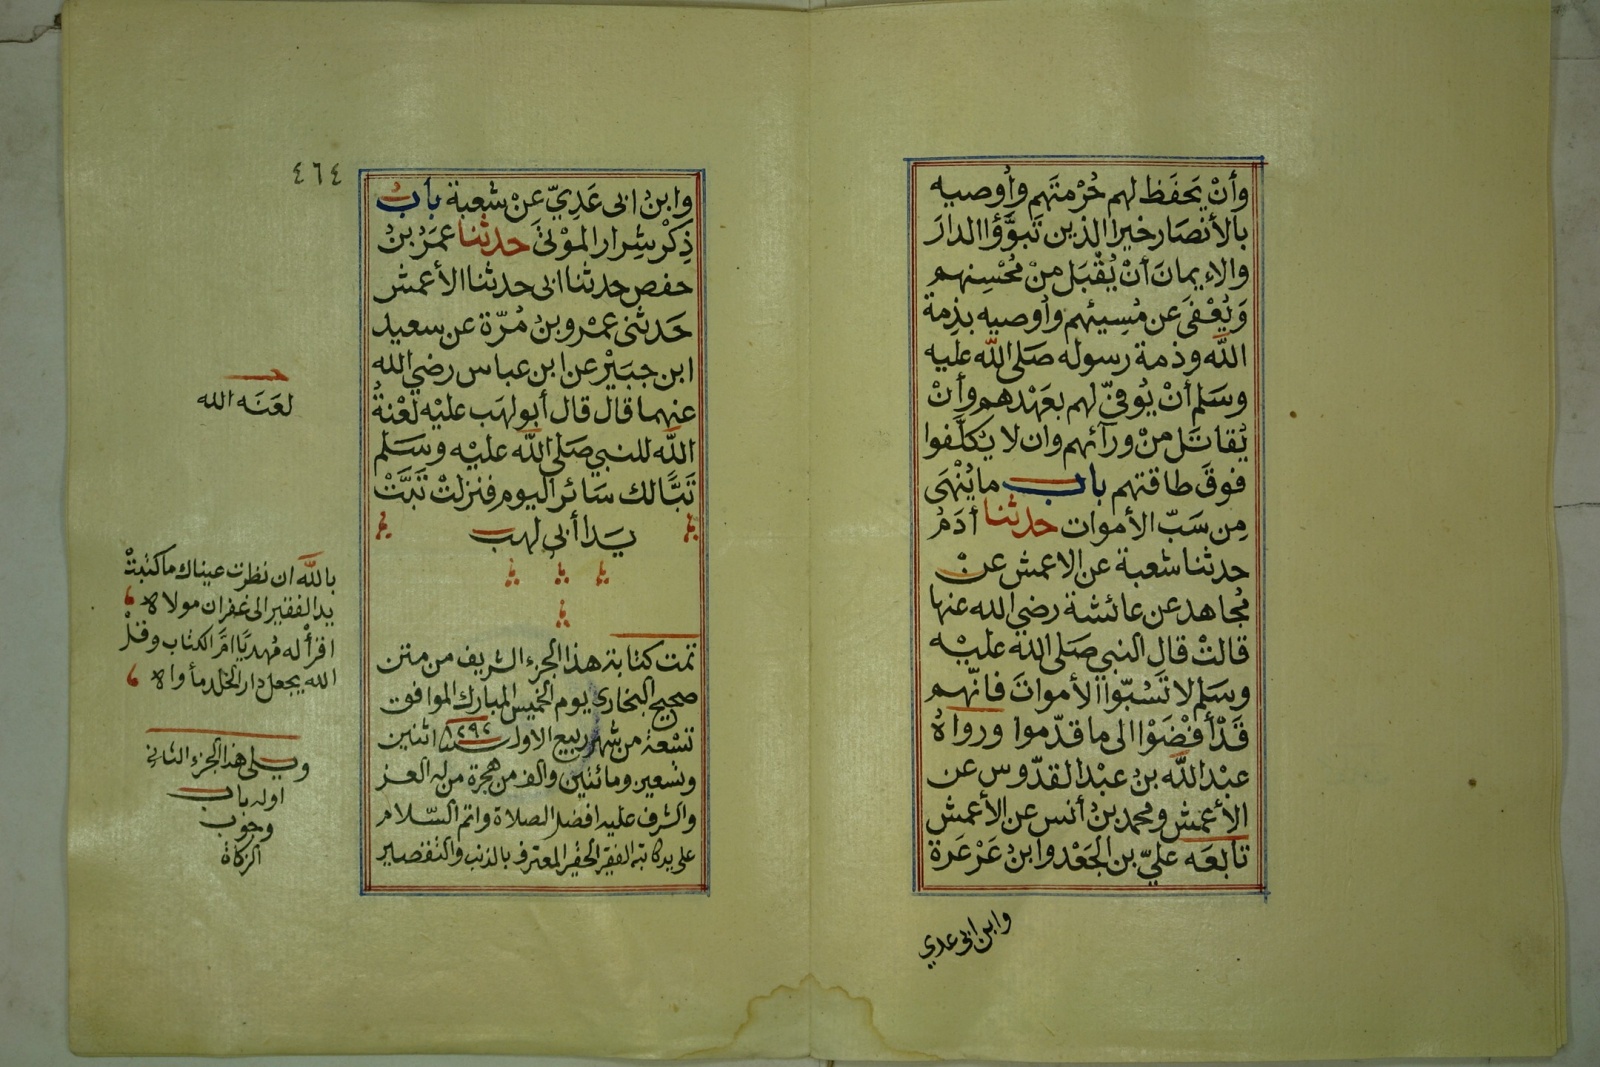 وأنْ يَحفَظ لهم حُرْمتَهم وأوصيه
بالأنصَار خيرا الذين تَبوَّؤا الدارَ
والإيمانَ أنْ يُقْبَل منْ مُحْسِنِهم
وَيُعْفَى عن مُسِيئهم وأوصيه بذِمة
اللّه وذمة رسوله صَلى اللّه عليه
وسَلم أنْ يُوفيّ لهم بعَهْدهم وأنْ
يُقاتَل منْ ورآئهم وان لا يُكلَّفوا
فوقَ طاقتهم باب ما يُنْهَى
مِن سَبّ الأموات حدثنا أدَمُ
حدثنا شعبة عن الاعمش عنْ
مُجاهد عن عائشة رضي الله عنها
قالتْ قال النبي صَلى الله عليْه
وسَلم لا تَسُبّوا الأمواتَ فانّهم
قَدْ أفْضَوْا الى ما قدّموا ورواهُ
عبْد اللّه بنُ عبْد القدّوس عن
الأعمش ومحمد بنُ أنس عن الأعمش
تابَعَه عليّ بن الجَعْد وابنُ عَرْعَرةَ
وابن ابى عدي
٤٦٤
وابنُ ابى عَدِيّ عَنْ شعبة بابُ
ذِكْر شِرار الموْتَىَ حدثنا عمَرُ بنُ
حفص حدثنا ابى حدثنا الأعمش
حَدثنى عمْرو بنُ مُرّة عن سعيد
ابن جبَيْر عن ابن عباس رضي الله
عنهما قال قال أبو لهَب عليْه لَعْنةُ
اللّه للنبي صَلى اللّه عليْه وسَلم
تَبًّا لك سَائر اليوم فنزلتْ تَبَّتْ
يَدا أبى لهب
تمت كتابة هذا الجزء الشريف من متن
صحيح البخاري يوم الخميس المبارك الموافق
تسْعة من شهر ربيع الاول سنة ١٢٩٢ اثنين
وتسعين ومائتين والف من هجرة من له العز
والشرف عليه افضل الصلاة واتم السّلام
على يد كاتبه الفقير الحقير المعترف بالذنب والتقصير
لعَنَه الله
باللّه ان نظرت عيناك ما كتبتْ
يد الفقير الى غفران مولاه
اقرأ له مُهديًا امَّ الكتاب وقلْ
الله يجعل دار الخلد مأواه
ويلى هذا الجزء الثاني
اوله باب
وجوب
الزكاة